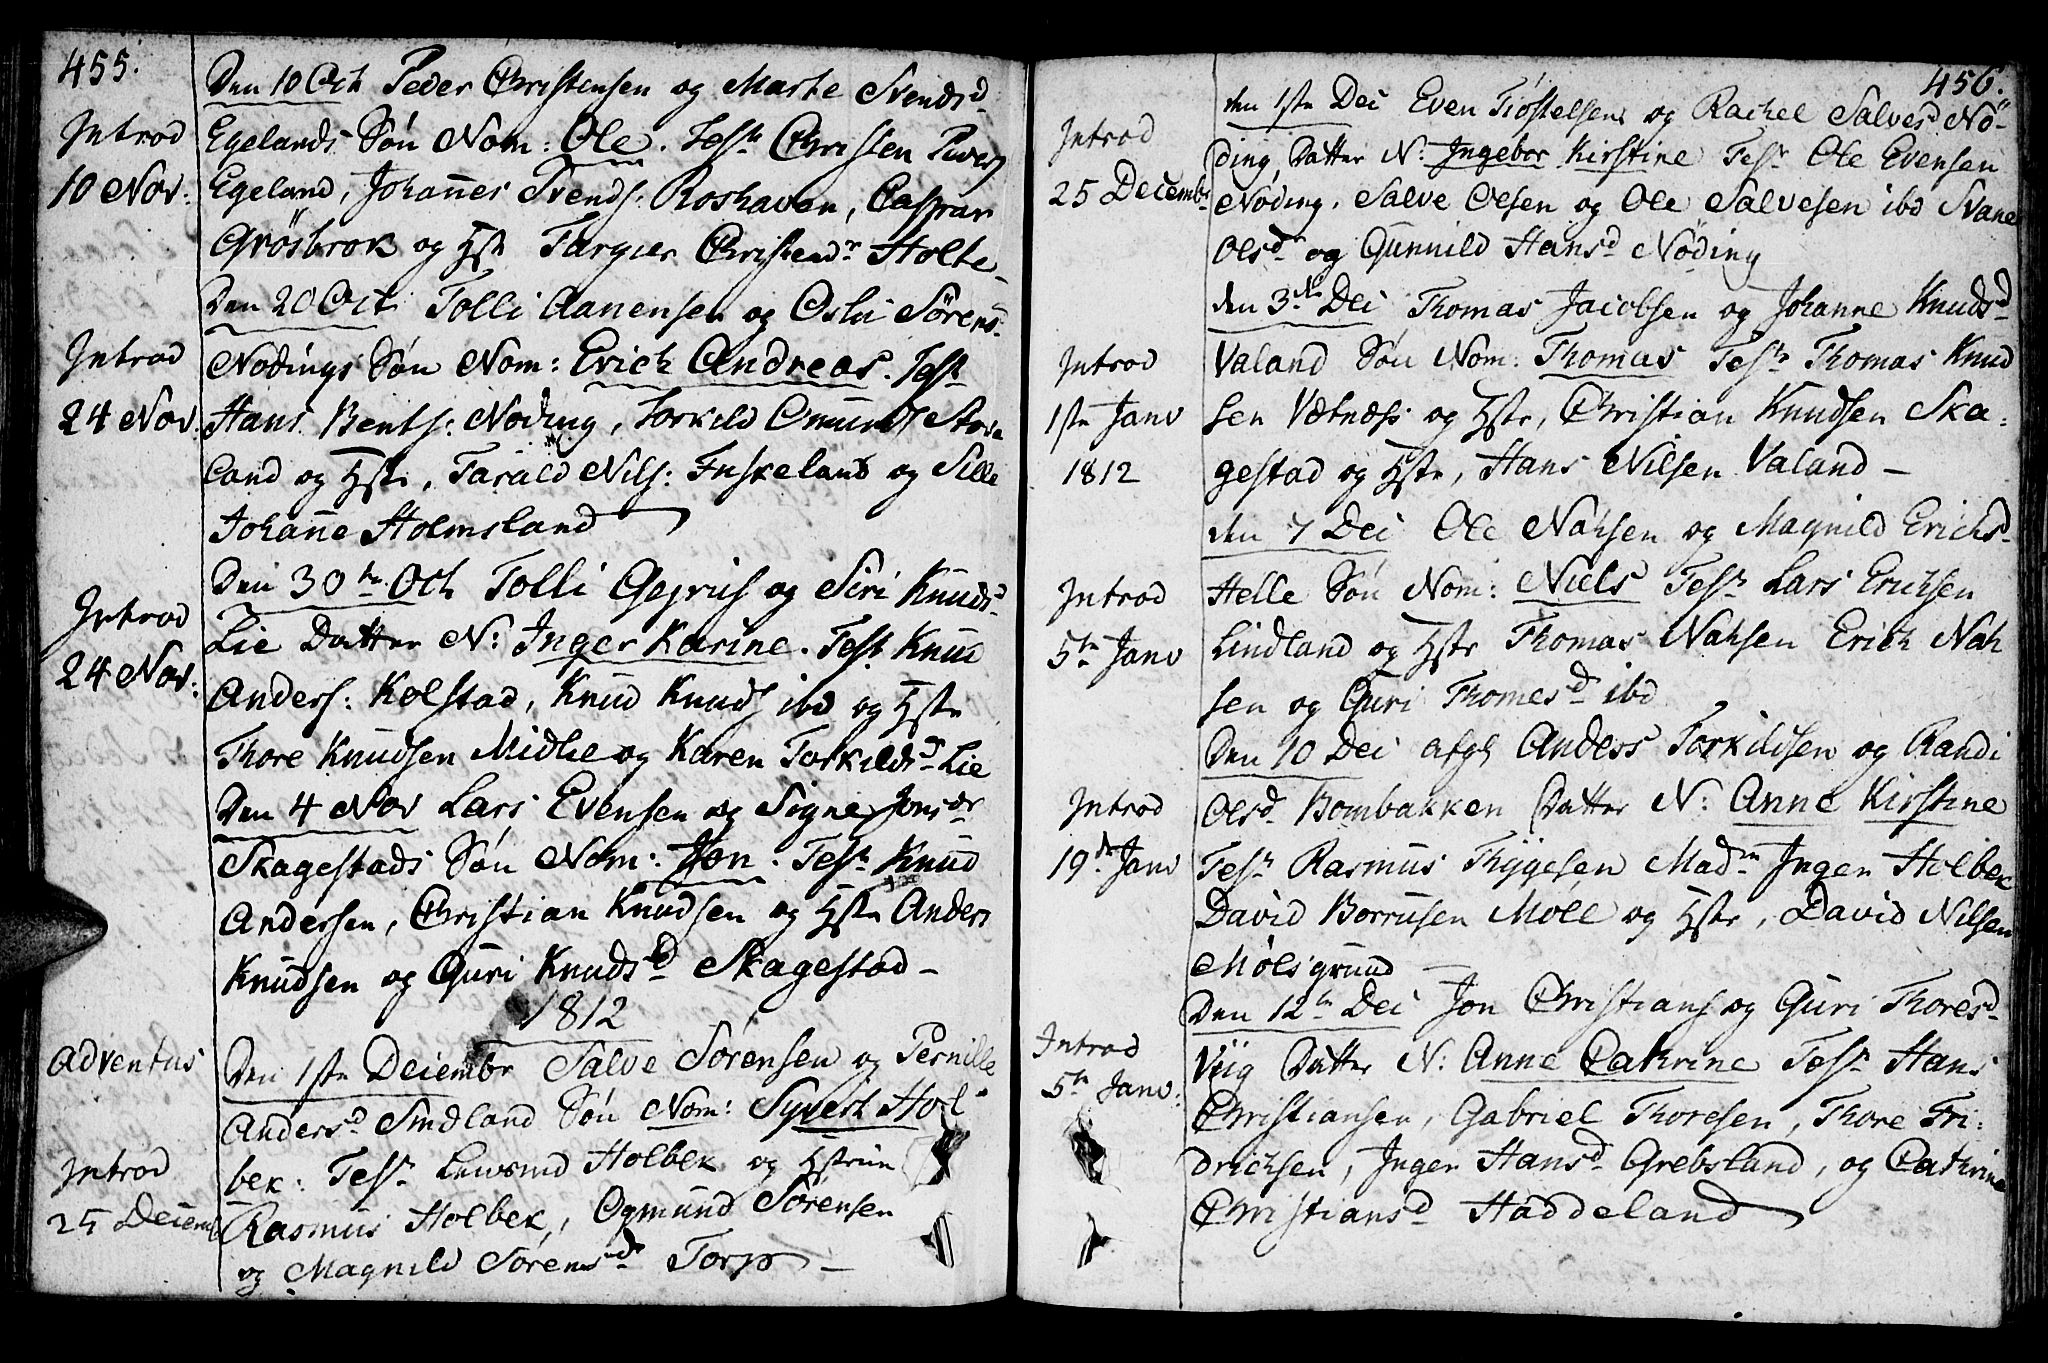 455.
Den 10 Oct Peder Christensen og Marte Svendsd
Introd
10 Nov:
Egelands Søn Nom: Ole. Test. Christen
Egeland, Johanes Svends: Roshaven, Caspar
Grösbrok og Hstr Targier Christendr Holte
Den 20 Oct Tolli Aanensen og Oslu Sörens
Introd
24 Nov
Nodings Søn Nom: Erich Andreas. Test
Hans Bents: Noding, Torkild Omunds Stave
land og Hstr, Tarald Nils: Fuskeland og Sille
Johane Holmsland
Den 30te Oct Tolli Gejruls og Siri Knuds
Introd
24 Nov:
Lie Datter N: Inger Karine. Test Knud
Anders: Kolstad, Knud Knuds ibd og Hstr
Thore Knudsen Midlie og Karen Torkildsd Lie
Den 4 Nov Lars Evensen og Signe Jonsdr
Skagestads Søn Nom: Jon. Test. Knud
Andersen, Christian Knudsen og Hstr Anders
Knudsen og Guri Knudsd Skagestad
1812
Adventus
Den 1ste Decembr Salve Sörensen og Pernille
Andersd Smdland Søn Nom: Syvert Hol
Introd
25 Decemb
bek: Test. Holbek og Hstrue
Rasmus Holbek, Ogmund Sörensen
og Magnild Sorensdr Torp
456.
den 1ste Dec Even Tiöstelsens og Rachel Salvesd Nö-
Introd
25 Decembr
ding, Datter N: Ingebor Kirstine Testr Ole Evensen
Noding, Salve Olsen og Ole Salvesen ibd Svane
Olsdr og Gunnild Hansd Nöding
den 3die Dec Thomas Jacobsen og Johanne Knudsd
Introd
1ste Janv
1812
Valand Søn Nom: Thomas Test. Thomas Knud
sen Vætnæss og Hstr, Christian Knudsen Ska-
gestad og Hstr, Hans Nilsen Valand
den 7 Dec Ole Nahsen og Magnild Erichsd
Introd
5te Janv
Helle Søn Nom: Niels Test. Lars Erichsen
Lindland og Hstr Thomas Nahsen Erich Nah
sen og Guri Thomesd ibd
Den 10 Dec afgl Anders Torkildsen og Randi
Introd
19de Janv
Olsd Bombakken Datter N: Anne Kirstine
Test. Rasmus Thygesen Madm Inger Holbek
David Borrusen Moll og Hstr, David Nilsen
Mölsgrund
Den 12te Dec Jon Christians og Guri Thoresd
Introd
5te Janv:
Viig Datter N: Anne Cathrine Test. Hans
Christiansen, Gabriel Thoresen, Thore Fri-
drichsen, Inger Hansd Grebsland, og Cathrine
Christiansd Haddeland